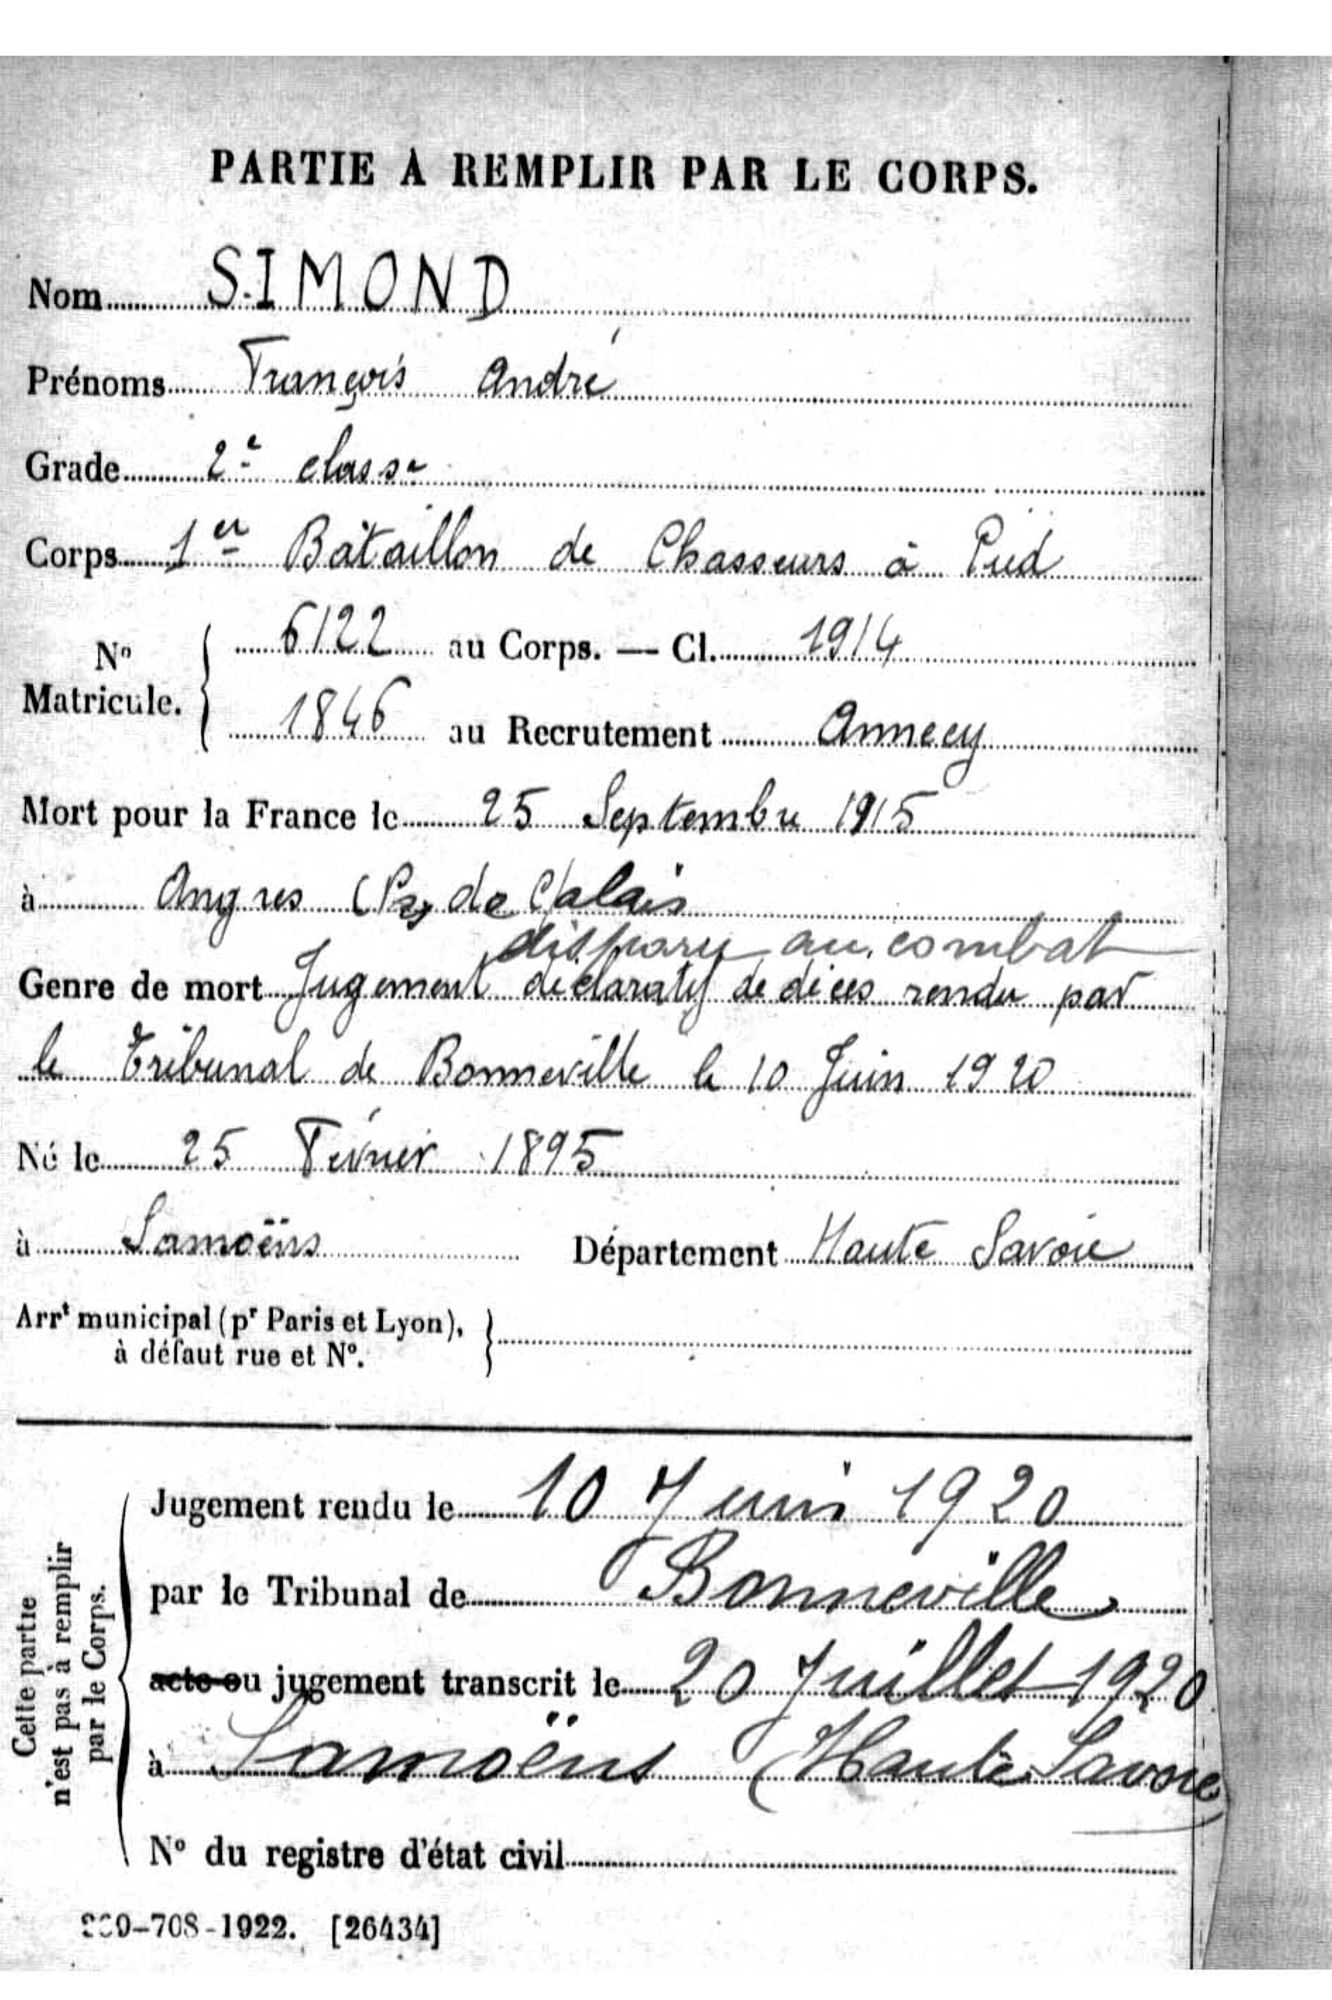 PARTIE À REMPLIR PAR LE CORPS.
Nom SIMOND
Prénoms François André
Grade 2e classe
Corps 1er Bataillon de Chasseurs à Pied
No Matricule. { 6122 au Corps. — Cl. 1914
1846 au Recrutement Annecy
Mort pour la France le 25 Septembre 1915
à Angres (Pas de Calais
disparu au combat
Genre de mort Jugement déclaratif de décès rendu par
le Tribunal de Bonneville le 10 Juin 1920
Né le 25 Février 1895
à Samoëns Département Haute Savoie
Arrt municipal (pr Paris et Lyon), }
à défaut rue et No.
Cette partie
n'est pas à remplir
par le Corps.
Jugement rendu le 10 Juin 1920
par le Tribunal de Bonneville
acte ou jugement transcrit le 20 Juillet 1920
à Samoëns (Haute Savoie)
No du registre d'état civil
-708-1922. [26434]